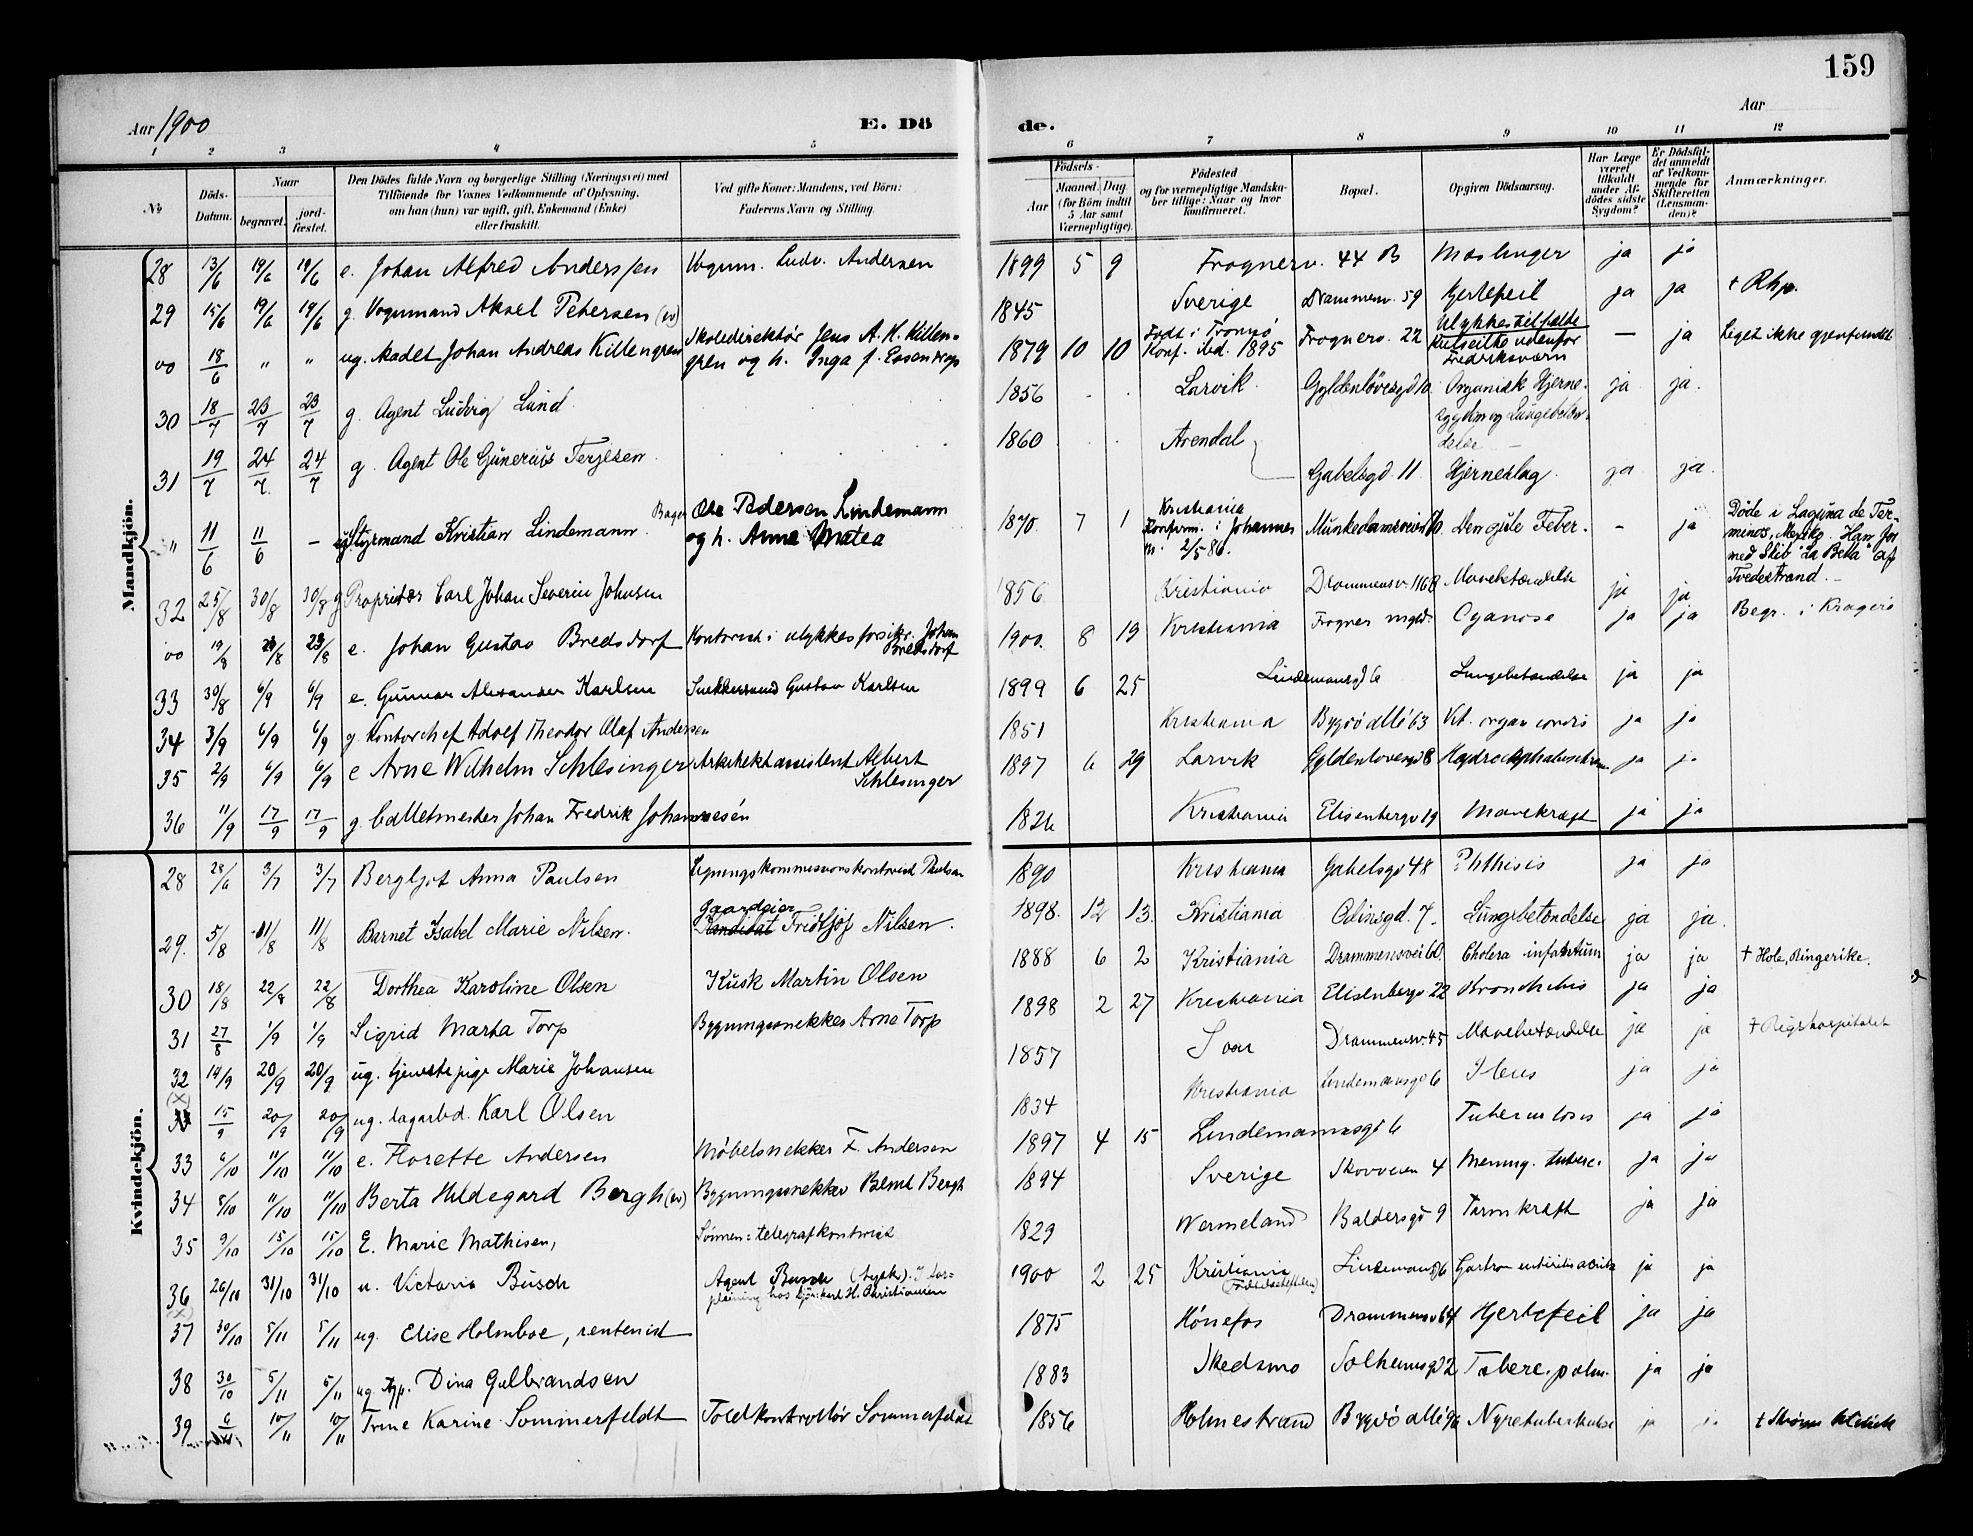 159
Aar 1900
E. Döde.
Aar
1 2 3 4 5 6 7 8 9 10 11 12
No
Döds-Datum.
Naar
begravet.
jordfæstet.
Den Dödes fulde Navn og borgerlige Stilling (Næringsvei) med
Tilföiende for Voxnes Vedkommende af Oplysning,
om han (hun) var ugift, gift, Enkemand (Enke)
eller fraskilt.
Ved gifte Koner: Mandens, ved Börn:
Faderens Navn og Stilling.
Födsels-
Aar
Maaned. Dag
(for Börn indtil
5 Aar samt
Værnepligtige).
Födested
og for værnepligtige Mandskaber tillige: Naar og hvor
konfirmeret.
Bopæl.
Opgiven Dödsaarsag.
Har Læge
været
tilkaldt
under Afdödes sidste
Sygdom?
Er Dödsfaldet anmeldt
af Vedkommende for
Skifteretten
(Lensmanden)?
Anmærkninger.
Mandkjön.
28 13/6 19/6 19/6 e. Johan Alfred Anderssen Vognm. Ludv. Andersen 1899 5 9 Frognerv. 44 B Mæslinger ja ja
29 15/6 19/6 19/6 g. Vognmand Aksel Petersen Sverige 1845 Drammensv. 59 Hjertefeil ja ja + Rhp.
oo 18/6 " " ug. Kadet Johan Andreas Killengren Skoledirektör Jens A. H. Killengren og h. Inga f. Essendrop 1879 10 10 Födt i Tromsö Konf. ibd. 1895 Frognerv. 22 Ulykkestilfælde Kutseilas udenfor Fredriksværn — ja Liget ikke gjenfundet
30 18/7 23/7 23/7 g. Agent Ludvig Lund 1856 Larvik Gyldenlövesgd 10 Organisk Hjernesygdom og Lungebetændelse ja ja.
31 19/7 24/7 24/7 g. Agent Ole Gunerius Terjesen 1860 Arendal Gabelsgd. 11 Hjerneslag ja ja.
" 11/6 11/6 — ug Styrmand Kristian Lindemann Bager Ole Pedersen Lindemann og h. Anna Matea 1870 7 1 Kristiania Konfirm. i Johannes m. 2/5 86. Munkedamsveien Den gule Feber — ja Döde i Laguna de Terminos, Mexiko. Han for med Skib "La Bella" af Tvedestrand.
32 25/8 30/8 30/8 g Proprietær Carl Johan Severin Johnsen 1856 Kristiania Drammensv. 116B Mavebetændelse ja ja Begr. i Kragerö
oo 19/8 23/8 23/8 e. Johan Gustav Bredsdorf Kontorist i ulykkesforsikr. Johan Bredsdorf 1900. 8 19 Kristiania Frogner Cyanose ja ja
33 30/8 6/9 6/9 e. Gunnar Alexander Karlsen Snekkersvend Gustav Karlsen 1899 6 25 Lindemansgd 6 Lungebetændelse ja ja
34 3/9 6/9 6/9 g. Kontorchef Adolf Theodor Olaf Andersen 1851 Kristiania Bygdö allé 63 Vit. organ cordis ja ja
35 2/9 6/9 6/9 e Arne Wilhelm Schlesinger Arkitektassistent Albert Schlesinger 1897 6 29 Larvik Gyldenlövesgd 8 ja ja
36 11/9 17/9 17/9 g. Balletmester Johan Fredrik Johannesén 1826 Kristiania Elisenbergv 19 Mavekræft ja ja
Kvindekjön.
28 28/6 3/7 3/7 Bergljot Anna Paulsen Ligningskommissionskontorist Paulsen 1890 Kristiania Gabelsgd 48 Phthisis ja ja
29. 5/8 11/8 11/8 Barnet Isabel Marie Nilsen. Gaardeier Kandidat Fridtjof Nilsen. 1898. 12 13. Kristiania Odinsgd. 7. Lungebetændelse ja ja.
30 18/8 22/8 22/8 Dorthea Karoline Olsen Kusk Martin Olsen 1888 6 2 Kristiania Drammensvei Cholera infantum ja ja + Hole, Ringerike.
31 27/8 1/9 1/9 Sigrid Marta Torp Bygningssnekker Arne Torp 1898 2 27 Kristiania Elisenbergv 22 Bronchitis ja ja
32 14/9 20/9 20/9 ug. tjenestepige Marie Johansen 1857 Drammensv. 45 Mavebetændelse ja ja + Rigshospitalet
15/9 20/9 20/9 ug. lagarbd. Karl Olsen 1834 Kristiania Lindemansgd 6 Ileus ja ja
33 6/10 11/10 11/10 e. Florette Andersen Möbelsnekker F. Andersen 1897 4 15 Lindemannsgd 6 Tuberculosis ja ja
34 5/10 11/10 11/10 Berta Hildegard Bergh Bygningssnekker Bernt Bergh 1894 Sverige Skovveien 4 Mening. tuberc. ja ja
35 9/10 15/10 15/10 E. Marie Mathisen, Sönnen: telegrafkontorist 1829 Wermeland Baldersgd 9 Tarmkræft ja ja
36 26/10 31/10 31/10 u. Victoria Busch Agent Busch (tysk). I forpleining hos H. Christiansen 1900 2 25 Kristiania (Födselsstiftelsen) Lindemansgd 6 ja ja
37 30/10 5/11 5/11 ug. Elise Holmboe, rentenist 1875 Hönefos Drammensv 64 Hjertefeil ja ja
38 30/10 5/11 5/11 ug tjp. Dina Gulbrandsen 1883 Skedsmo Solheimsgd 2 Taberc. pulm. ja ja
39 10/11 10/11 Trine Karine Sommerfeldt Toldkontrollör Sommerfeldt 1856 Holmestrand Bygdö allé Nyretuberkulose ja ja +